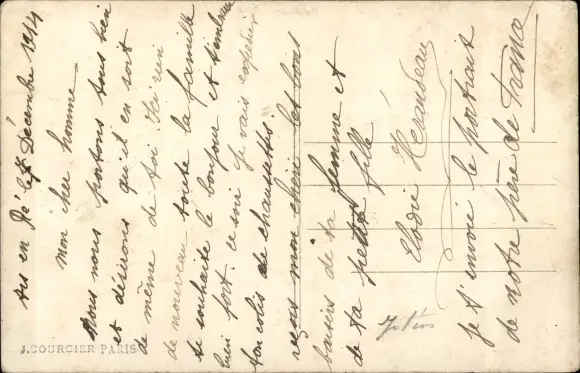 Ars en Ré le 7 Décembre 1914
Mon cher homme
Nous nous portons tous bien
et désirons qu'il en soit
de même de toi. Ici rien
de nouveau toute la famille
te souhaite le bonjour et t'embrasse
bien fort. ce soir je vais expédier
ton colis de chaussettes.
reçois mon chéri les bons
baisers de ta femme et
de ta petite fille
Elodie
je t'envoie le portrait
de notre père de
J. COURCIER PARIS